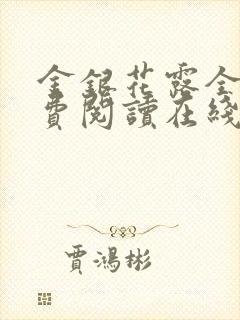 金銀花露全
費閱讀在綫
賈鴻彬